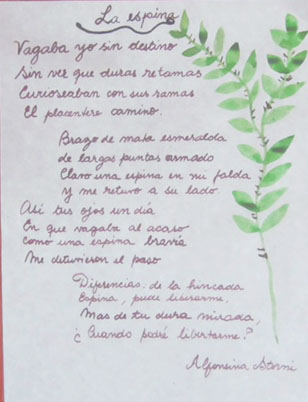 La espina
Vagaba yo sin destino
Sin ver que duras retamas
Curioseaban con sus ramas
El placentero camino.
Brazo de mata esmeralda
de largas puntas armado
Clavo una espina en mi falda
Y me retuvo a su lado.
Así tus ojos un día
En que vagaba al acaso
Como una espina bravía
Me detuvieron el paso
Diferencias: de la hincada
Espina, pude liberarme,
Mas de tu dura mirada,
¿Cuando podré libertarme?
Alfonsina Storni